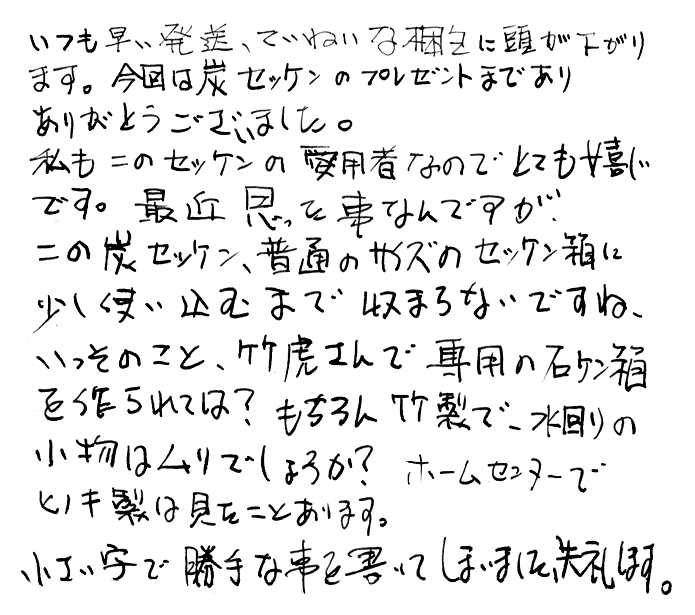 いつも早い発送、ていねいな梱包に頭が下がり
ます。今回は炭セッケンのプレゼントまであり
ありがとうございました。
私もこのセッケンの愛用者なのでとても嬉しい
です。最近思った事なんですが、
この炭セッケン、普通のサイズのセッケン箱に
少し使い込むまで収まらないですね、
いっそのこと、竹虎さんで専用の石ケン箱
を作られては？もちろん竹製で、水回りの
小物はムリでしょうか？ホームセンターで
ヒノキ製は見たことあります。
小さい字で勝手な事を書いてしまいました、失礼します。